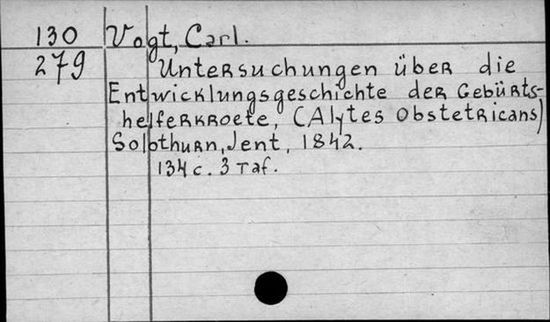 130 Vogt, Carl.
279 Untersuchungen über die
Entwicklungsgeschichte der Gebürts-
helferkroete, (Alytes obstetricans)
Solothurn, Jent, 1842.
134 c. 3 Taf.